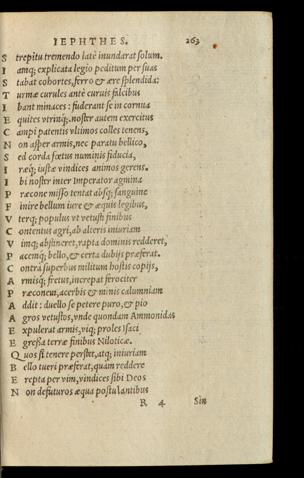 IEPHTHES. 263
S trepitu tremendo latè inundarat solum.
I amq; explicata legio peditum per suas
S tabat cohortes, ferro & ære splendida:
T urmæ curules antè curuis falcibus
I bant minaces: fuderant se in cornua
E quites vtrinq;. noster autem exercitus
C ampi patentis vltimos colles tenens,
N on asper armis, nec paratu bellico,
S ed corda fœtus numinis fiducia,
I ræq; iustæ vindices animos gerens.
I bi noster inter Imperator agmina
P ræcone misso tentat absq; sanguine
F inire bellum iure & æquis legibus,
V terq; populus vt vetustis finibus
C ontentus agri, ab alteris iniuriam
V imq; abstineret, rapta dominis redderet,
P acemq; bello, & certa dubijs præferat.
C ontrà superbus militum hostis copijs,
A rmisq; fretus, increpat ferociter
P ræconeus, acerbis & minis calumniam
A ddit: duello se petere puro, & pio
A gros vetustos, vnde quondam Ammonidas
E xpulerat armis, viq; proles Isaci
E gressa terræ finibus Niloticæ.
Q uos si tenere perstet, atq; iniuriam
B ello tueri præferat, quam reddere
E repta per vim, vindices sibi Deos
N on defuturos æqua postulantibus
R 4 Sin